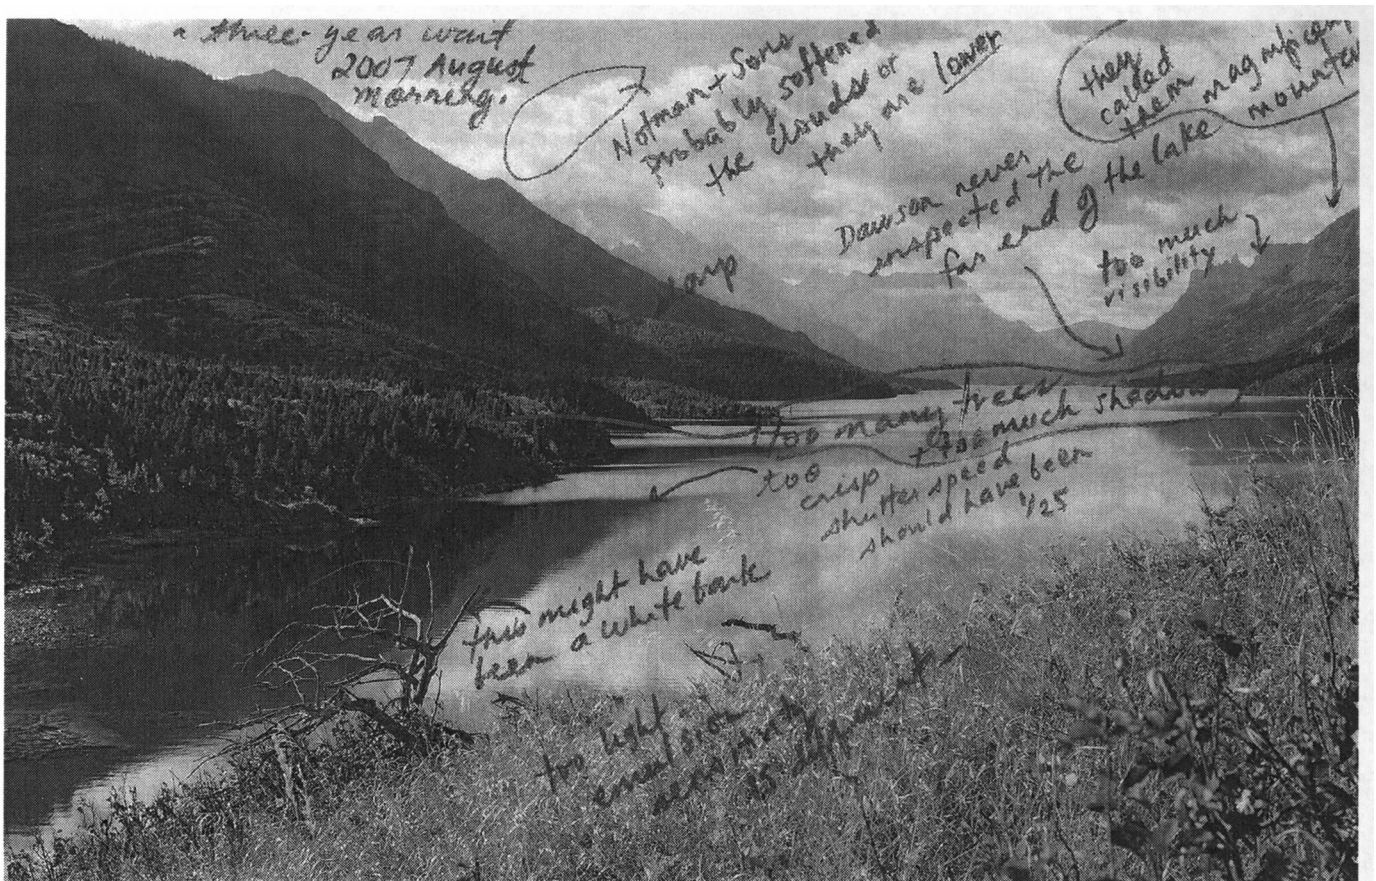 a three-year wait
2007 August
morning.
Notman + Sons
probably softened
the clouds or
they are lower
they
called
them magnificent
mountains
Dawson never
inspected the
far end of the lake
too much
visibility
too many trees
+ too much shadow
too
crisp
shutter speed
should have been
1/25
this might have
been a white bank
too light
emulsion
sensitivity
is different